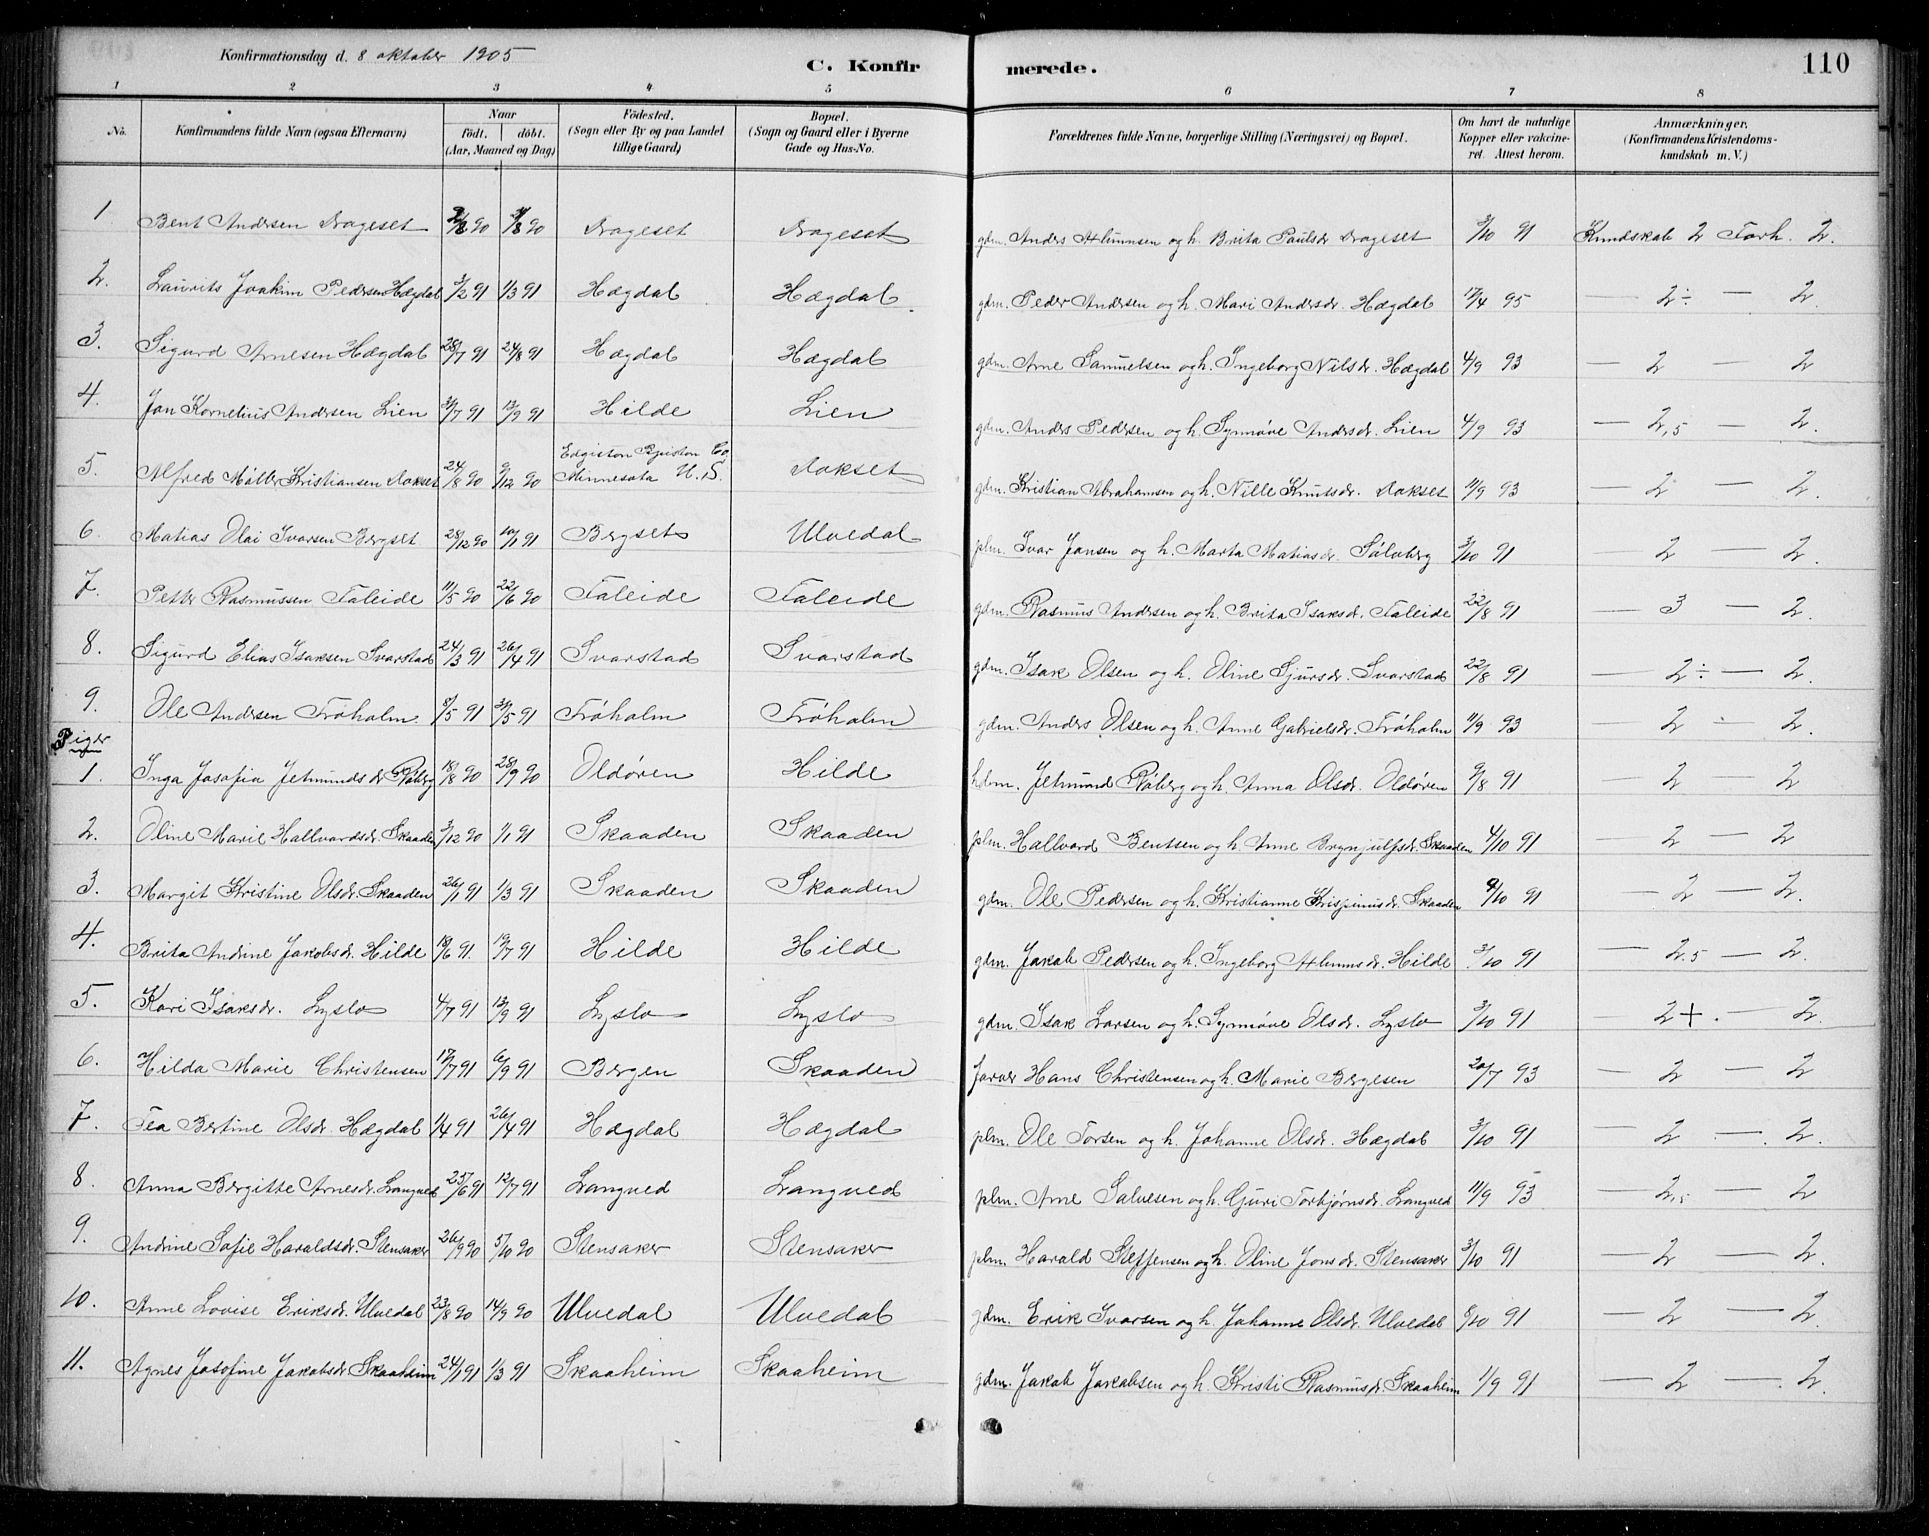 Konfirmationsdag d. 8 oktober 1905
C. Konfirmerede.
110
1 2 3 4 5 6 7 8
No. Konfirmandens fulde Navn (ogsaa Efternavn) Naar födt. döbt. (Aar, Maaned og Dag) Födested. (Sogn eller By og paa Landet tillige Gaard) Bopæl. (Sogn og Gaard eller i Byerne Gade og Hus-No. Forældrenes fulde Navne, borgerlige Stilling (Næringsvei) og Bopæl. Om havt de naturlige Kopper eller vakcineret. Attest herom. Anmærkninger. (Konfirmandens Kristendomskundskab m. V.)
1 Bent Andersen Drageset 90 90 Drageset Drageset gdm. Anders og h. Brita Paulsdr Drageset 3/10 91 Kundskab 2 Forh. 2.
2. Laurits Joakim Pedersen Hægdal 3/2 91 1/3 91 Hægdal Hægdal gdm. Peder Andersen og h. Mari Andersdr. Hægdal 17/4 95 — 2÷ — 2.
3. Sigurd Arnesen Hægdal 28/7 91 24/8 91 Hægdal Hægdal gdm. Arne Samuelsen og h. Ingeborg Nilsdr. Hægdal 4/9 93 — 2 — 2
4. Jon Kornelius Andersen Lien 31/7 91 13/9 91 Hilde Lien gdm. Anders Pedersen og h. Synnøve Andersdr. Lien 4/9 93 — 2,5 — 2.
5. Alfred Møller Kristiansen Aakset 24/8 90 9/12 90 Edgiston Co. Minnesota U.S. Aakset gdm. Kristian Abrahamsen og h. Nille Knutsdr. Aakset 11/9 93 — 2 — 2.
6. Matias Olai Ivarsen Bergset 28/12 90 10/1 91 Bergset Ulvedal plm. Ivar Jansen og h. Marta Matiasdr. Sølvberg 3/10 91 — 2 — 2.
7. Petter Rasmussen Faleide 11/5 90 22/6 90 Faleide Faleide gdm. Rasmus Andersen og h. Brita Isaksdr. Faleide 22/8 91 — 3 — 2.
8. Sigurd Elias Isaksen Svarstad 24/3 91 26/4 91 Svarstad Svarstad gdm. Isak Olsen og h. Oline Sjursdr. Svarstad 22/8 91 — 2÷ — 2.
9. Ole Andersen Frøholm 8/5 91 31/5 91 Frøholm Frøholm gdm. Anders Olsen og h. Anne Gabrielsdr. Frøholm 11/9 93 — 2 — 2.
Piger
1. Inga Josefia Jetmundsdr Røberg 18/8 90 28/9 90 Oldøren Hilde Jetmund Røberg og h. Anna Olsdr. Oldøren 9/8 91 — 2 — 2
2. Oline Marie Hallvardsdr. Skaaden 3/12 90 1/1 91 Skaaden Skaaden plm. Hallvard Bentsen og h. Anne Brynjulfsdr. Skaaden 4/10 91 — 2 — 2
3. Margit Kristine Olsdr. Skaaden 26/1 91 1/3 91 Skaaden Skaaden gdm. Ole Pedersen og h. Kristianne Krispinusdr. Skaaden 9/10 91 — 2 — 2.
4. Brita Andrine Jakobsdr. Hilde 18/6 91. 19/7 91 Hilde Hilde gdm. Jakob Pedersen og h. Ingeborg Hilde 3/10 91 — 2.5 — 2.
5. Kari Isaksdr. Lyslo 4/7 91 13/9 91 Lyslo Lyslo gdm. Isak Larsen og h. Synnøve Olsdr. Lyslo 3/10 91 — 2+. — 2.
6. Hilda Marie Christensen 17/7 91 6/9 91 Bergen Skaaden farver Hans Christensen og h. Marie Bergesen 20/7 93 — 2 — 2
7. Tea Bertine Olsdr. Hægdal 1/4 91 26/4 91 Hægdal Hægdal plm. Ole Torsen og h. Johanne Olsdr. Hægdal 3/10 91 — 2 — 2.
8. Anna Bergitte Arnesdr. Langved 25/6 91 12/7 91 Langved Langved plm. Arne Salvesen og h. Guri Torbjørnsdr. Langved 11/9 93 — 2,5 — 2
9. Andrine Sofie Haraldsdr. Stensaker 26/9 90 5/10 90 Stensaker Stensaker plm. Harald Steffensen og h. Oline Jonsdr. Stensaker 3/10 91 — 2 — 2.
10. Anne Lovise Eriksdr. Ulvedal 23/8 90 14/9 90 Ulvedal Ulvedal gdm. Erik Ivarsen og h. Johanne Olsdr. Ulvedal 6/10 91 — 2 — 2.
11. Agnes Josefine Jakobsdr. Skaaheim 24/1 91 1/3 91 Skaaheim Skaaheim gdm. Jakob Jakobsen og h. Kristi Rasmusdr. Skaaheim 1/9 91 — 2 — 2.